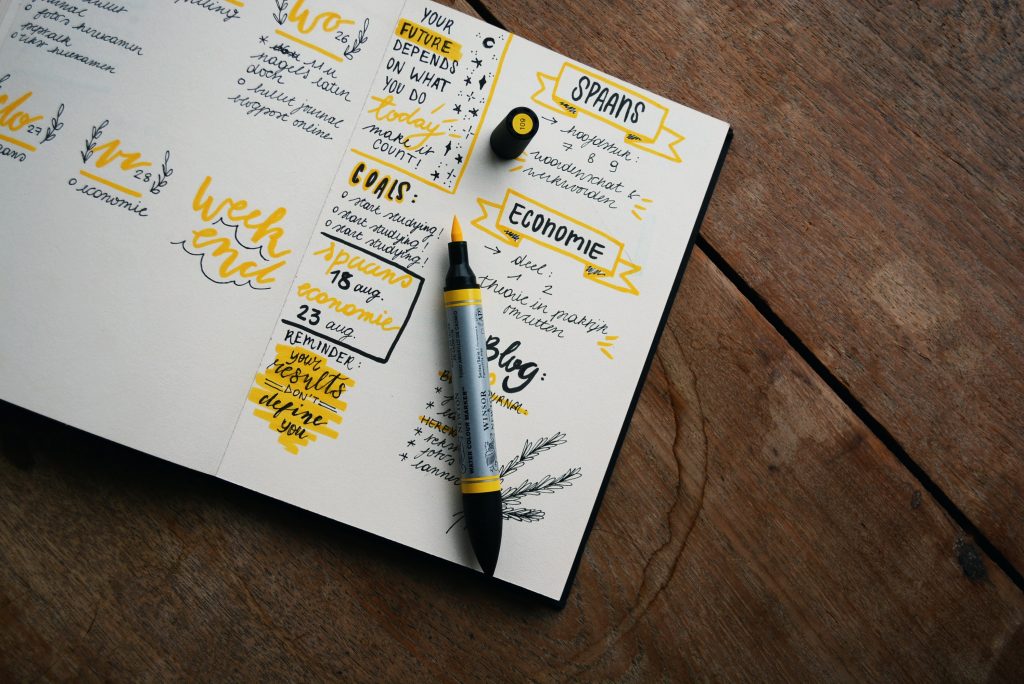 bullet
journal
o foto's herexamen
o tekst herexamen
wo 26
* 11 u
nagels laten
doen
o bullet journal
blogpost online
do 27
vr 28
o economie
week
end
YOUR
FUTURE
DEPENDS
ON WHAT
YOU DO
today
make it
COUNT!
GOALS:
o start studying!
o start studying!
o start studying!
spaans
18 aug.
economie
23 aug.
REMINDER:
your
results
DON'T
define
you
109
SPAANS
→ hoofdstuk:
7 8 9
woordenschat &
werkwoorden
ECONOMIE
→ deel:
1 2
theorie in praktijk
omzetten
Blog:
JOURNAL:
WATER COLOUR MARKER
WINSOR